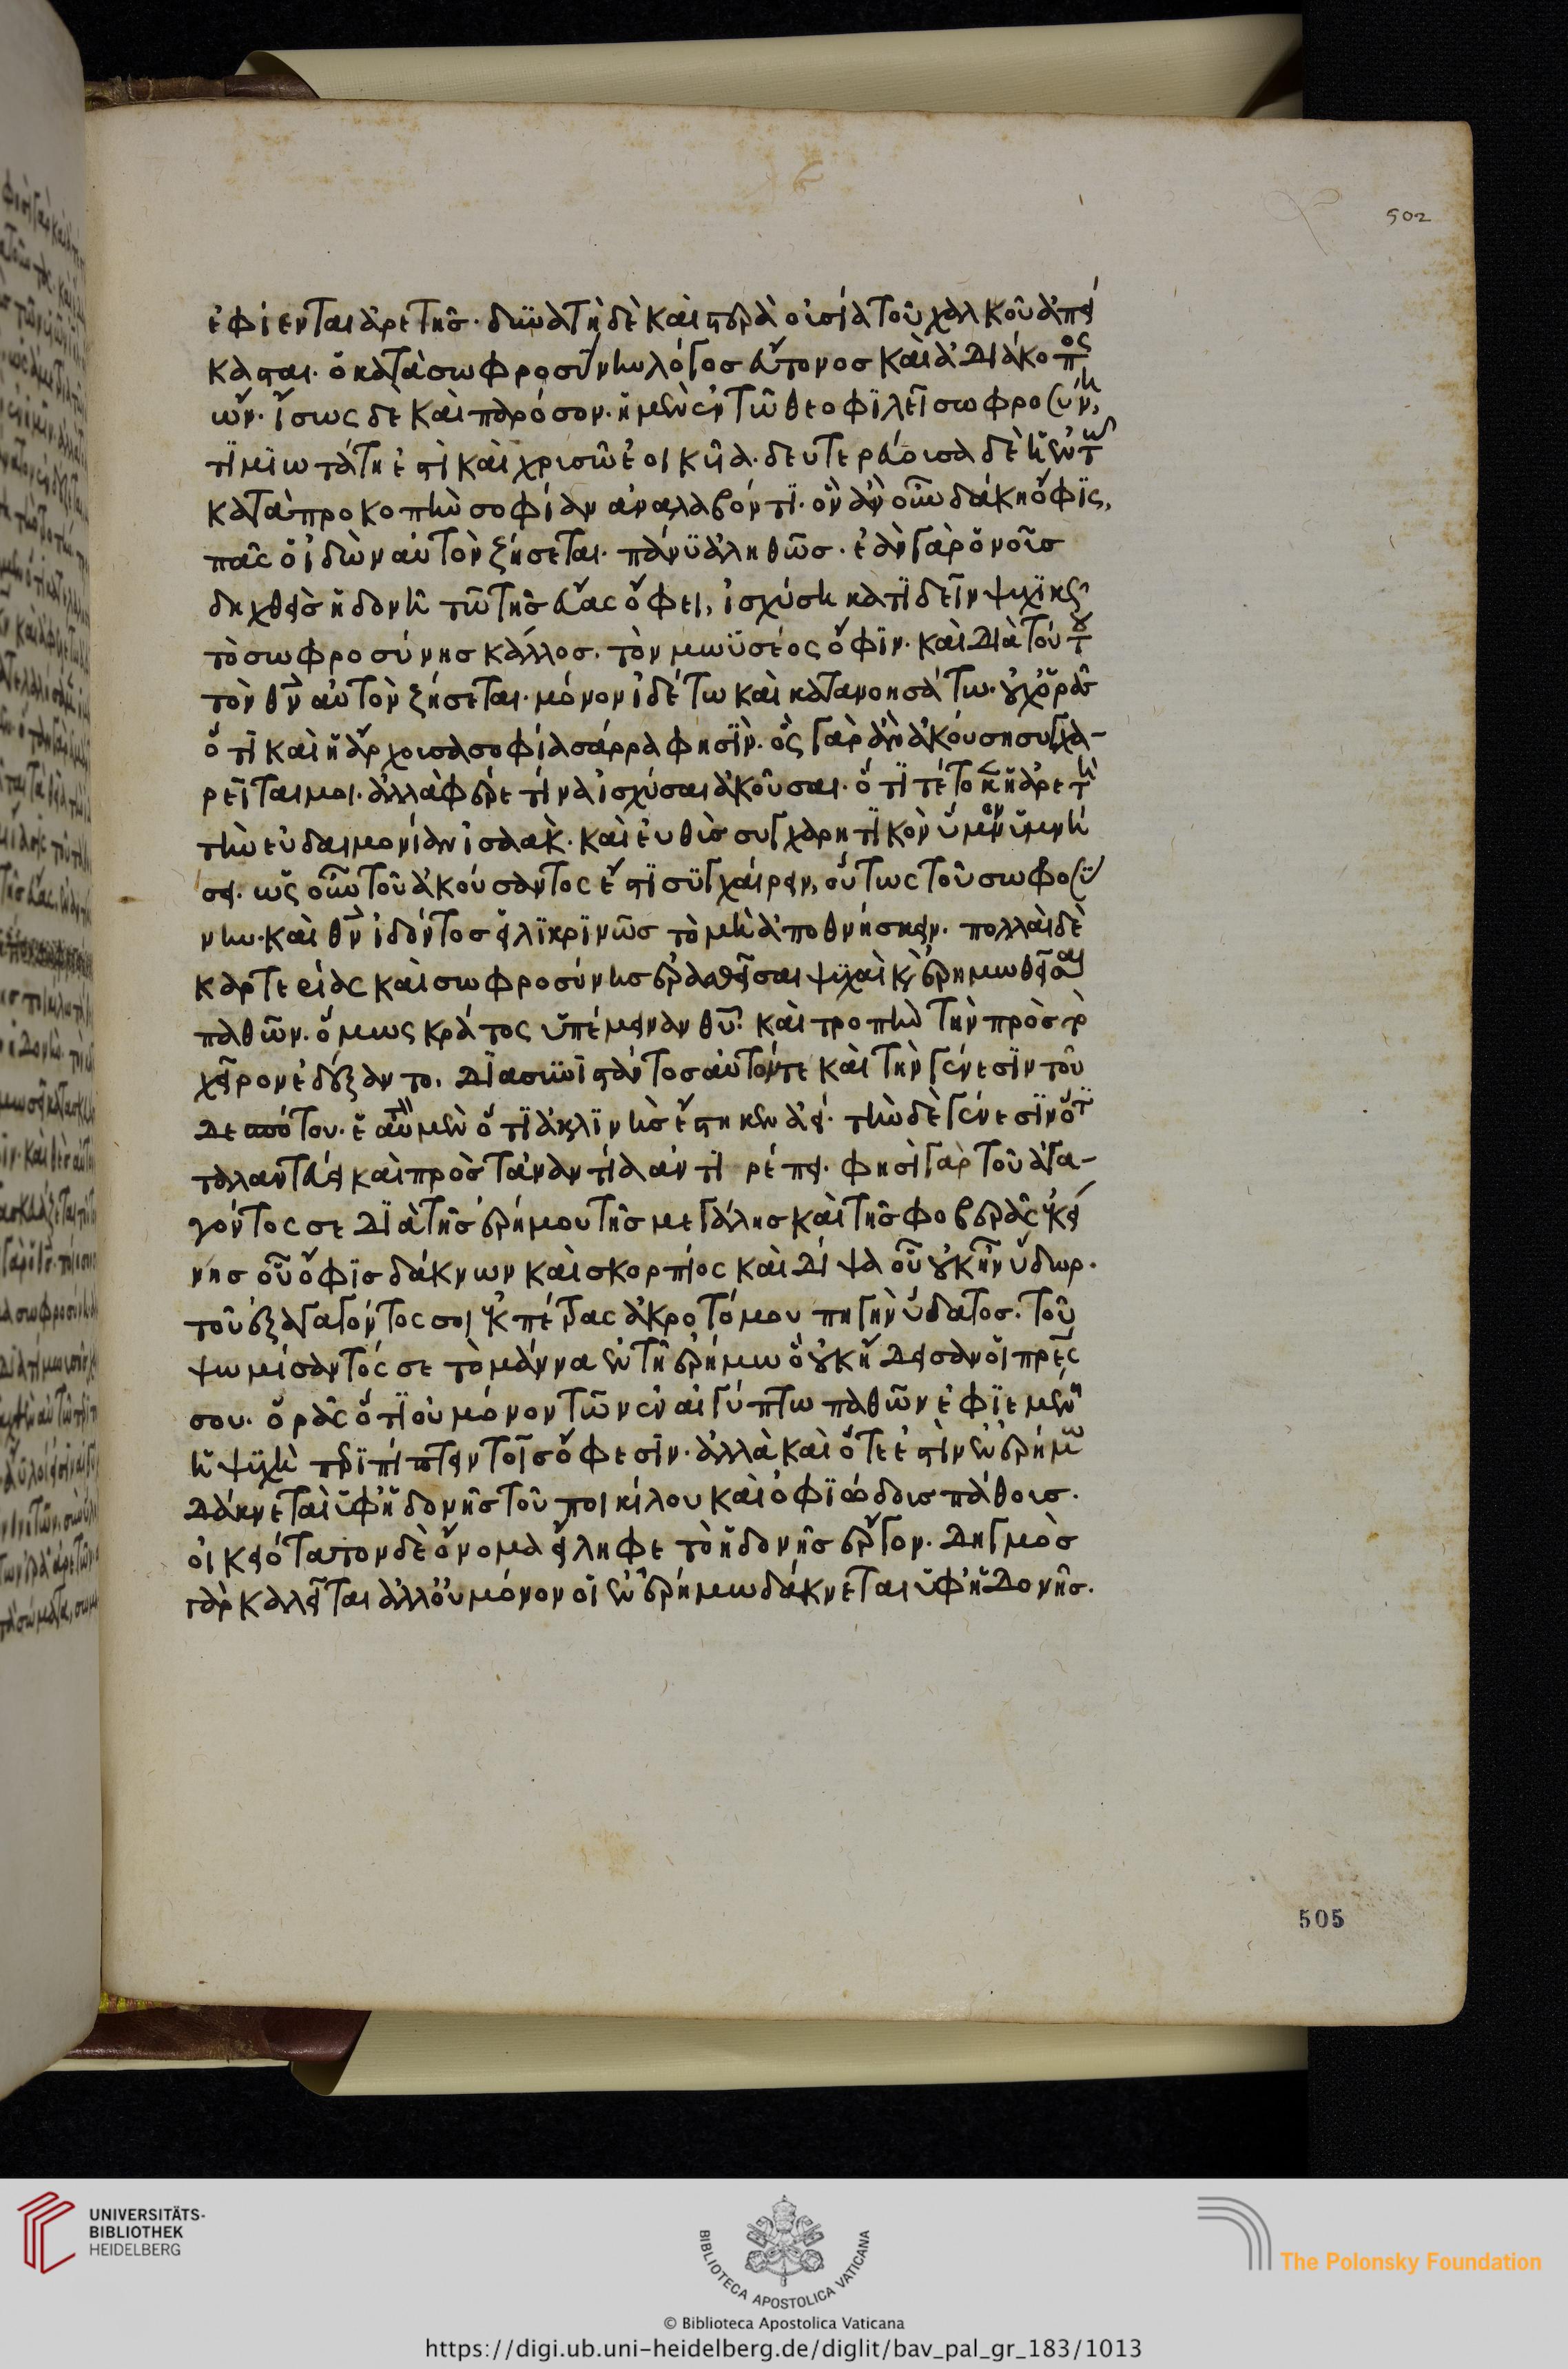 ἐφίενται ἀρετῆς. δυνατὴ δὲ καὶ στερεὰ οὐσία τοῦ χαλκοῦ ἀπεί
κασται. ὁ κατὰ σωφροσύνην λόγος εὔτονος καὶ ἀδιάκοπος
ὤν. ἴσως δὲ καὶ παρόσον. ἡ μὲν ἐν τῶ θεοφιλεῖ σωφροσύνη,
τιμιωτάτη ἐστὶ καὶ χρυσῶ ἐοικυῖα. δευτερεύουσα δὲ ἡ ἐν τῶ
κατὰ προκοπὴν σοφίαν ἀναλαβόντι. ὃν ἂν οὖν δάκη ὄφις,
πᾶς ὁ ἰδὼν αὐτὸν ζήσεται. πάνυ ἀληθῶς. ἐὰν γὰρ ὁ νοῦς
δηχθεὶς ἡδονῆ τῶ τῆς εὔας ὄφει, ἰσχύση κατιδεῖν ψυχικῶς
τὸ σωφροσύνης κάλλος. τὸν μωϋσέως ὄφιν. καὶ διὰ τούτου
τὸν θν αὐτὸν ζήσεται. μόνον ἰδέτω καὶ κατανοησάτω. οὐχ ὁρᾶς
ὅτι καὶ ἡ ἄρχουσα σοφία σάρρα φησὶν. ὃς γὰρ ἂν ἀκούση συγχα-
ρεῖται μοι. ἀλλὰ φέρε τινὰ ἰσχύσαι ἀκοῦσαι. ὅτι τέτοκεν ἡ ἀρετὴ
τὴν εὐδαιμονίαν ἰσαὰκ. καὶ εὐθὺς συγχαρητικὸν ὕμνον ὑμνή
σει. ὡς οὖν τοῦ ἀκούσαντος ἔστι συγχαίρειν, οὕτως τοῦ σωφροσύ
νην. καὶ θν ἰδόντος εἰλικρινῶς τὸ μὴ ἀποθνήσκειν. πολλαὶ δὲ
καρτερίας καὶ σωφροσύνης ἐρασθεῖσαι ψυχαὶ καὶ ἐρημωθεῖσαι
παθῶν. ὅμως κράτος ὑπέμειναν θυ. καὶ τροπὴν τὴν πρὸς τὸ
χεῖρον ἐδέξαντο. διασυνιστάντος αὐτόν τε καὶ τὴν γένεσιν τοῦ
δεσπότου. ἑαυτὸν μὲν ὅτι ἀκλινὴς ἕστηκεν ἀεί. τὴν δὲ γένεσιν ὅτι
ταλαντεύει καὶ πρὸς τἀναντία ἀντιρέπει. φησὶ γὰρ τοῦ ἀγα-
γόντος σε διὰ τῆς ἐρήμου τῆς μεγάλης καὶ τῆς φοβερᾶς ἐκεί
νης οὗ ὄφις δάκνων καὶ σκορπίος καὶ δίψα οὗ οὐκ ἦν ὕδωρ.
τοῦ ἐξαγαγόντος σοι ἐκ πέτρας ἀκροτόμου πηγὴν ὕδατος. τοῦ
ψωμίσαντός σε τὸ μάννα ἐν τῆ ἐρήμω ὃ οὐκ ἤδεισαν οἱ πρες
σου. ὁρᾶς ὅτι οὐ μόνον τῶν ἐν αἰγύπτω παθῶν ἐφιεμένη
ἡ ψυχὴ περιπίπτει τοῖς ὄφεσιν. ἀλλὰ καὶ ὅτε ἐστὶν ἐν ἐρήμω
δάκνεται ὑφ' ἡδονῆς τοῦ ποικίλου καὶ ὀφιώδους πάθους.
οἰκειότατον δὲ ὄνομα εἴληφε τὸ ἡδονῆς ἔργον. δηγμὸς
γὰρ καλεῖται ἀλλ' οὐ μόνον οἱ ἐν ἐρήμω δάκνεται ὑφ' ἡδονῆς.
502
505
UNIVERSITÄTS-
BIBLIOTHEK
HEIDELBERG
BIBLIOTECA APOSTOLICA VATICANA
The Polonsky Foundation
© Biblioteca Apostolica Vaticana
https://digi.ub.uni-heidelberg.de/diglit/bav_pal_gr_183/1013